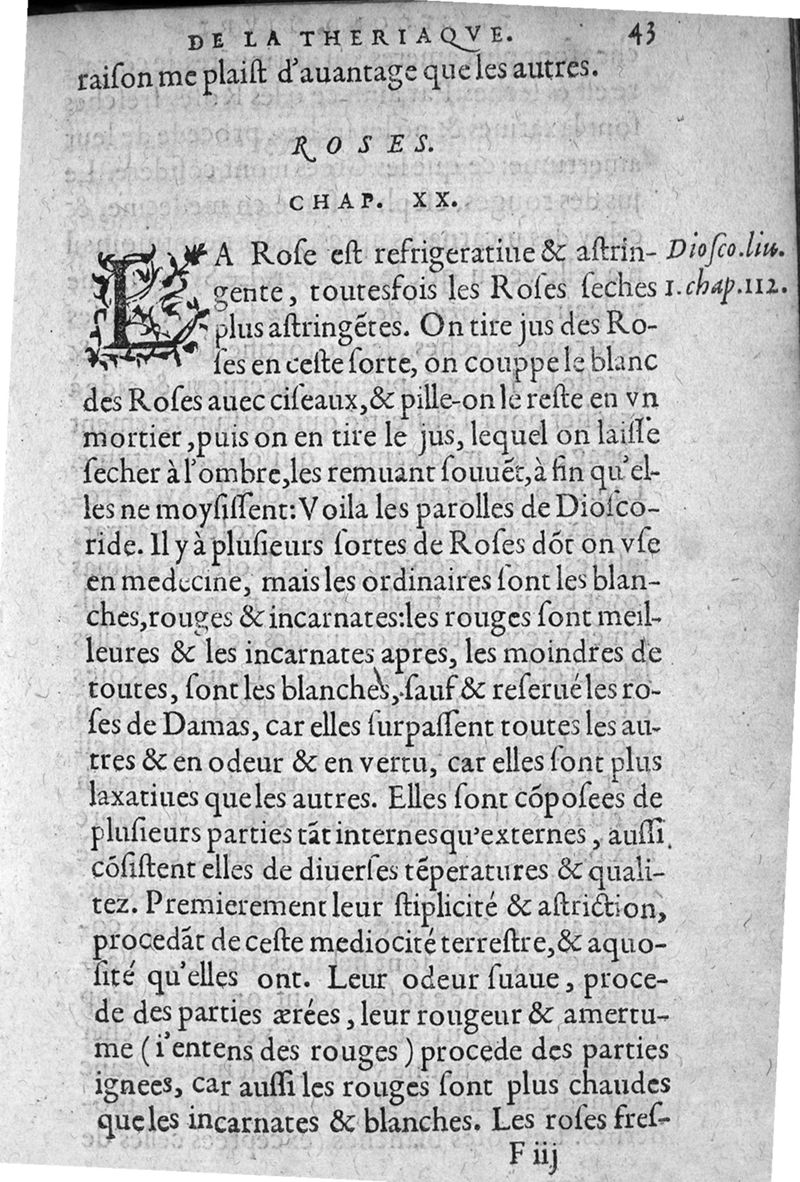 DE LA THERIAQVE. 43
raiſon me plaiſt d'auantage que les autres.
ROSES.
CHAP. XX.
LA Roſe eſt refrigeratiue & aſtrin- Dioſco.liu.
gente, toutesfois les Roſes ſeches 1.chap.112.
plus aſtringẽtes. On tire jus des Ro-
ſes en ceſte ſorte, on couppe le blanc
des Roſes auec ciſeaux,& pille-on le reſte en vn
mortier,puis on en tire le jus, lequel on laiſſe
ſecher à l'ombre,les remuant ſouuẽt,à fin qu'el-
les ne moyſiſſent:Voila les parolles de Dioſco-
ride. Il y à pluſieurs ſortes de Roſes dõt on vſe
en medecine, mais les ordinaires ſont les blan-
ches,rouges & incarnates:les rouges ſont meil-
leures & les incarnates apres, les moindres de
toutes, ſont les blanches, ſauf & reſerué les ro-
ſes de Damas, car elles ſurpaſſent toutes les au-
tres & en odeur & en vertu, car elles ſont plus
laxatiues que les autres. Elles ſont cõpoſees de
pluſieurs parties tãt internes qu'externes, auſſi
cõſiſtent elles de diuerſes tẽperatures & quali-
tez. Premierement leur ſtiplicité & aſtriction,
procedãt de ceſte mediocité terreſtre,& aquo-
ſité qu'elles ont. Leur odeur ſuaue, proce-
de des parties ærées, leur rougeur & amertu-
me (i'entens des rouges) procede des parties
ignees, car auſſi les rouges ſont plus chaudes
que les incarnates & blanches. Les roſes freſ-
F iij